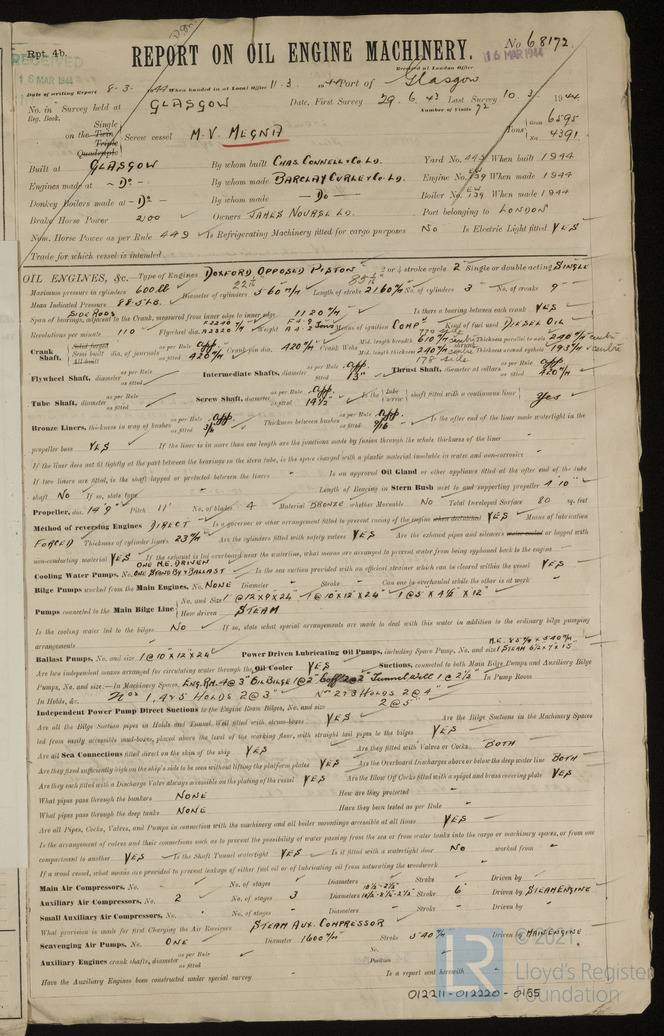 Rpt. 4b.
REPORT ON OIL ENGINE MACHINERY.
No 68172
RECEIVED
16 MAR 1944
16 MAR 1944
Received at London Office
Date of writing Report 8-3- 1944 When handed in at Local Office 11.3 1944 Port of Glasgow
No. in Survey held at GLASGOW Date, First Survey 29.6.43 Last Survey 10.3 1944
Reg. Book. Number of Visits 72
Single
on the Twin Screw vessel M.V. MEGNA
Triple
Quadruple
Tons Gross 6595
Net 4391
Built at GLASGOW By whom built CHAS. CONNELL & CO. LD. Yard No. When built 1944
Engines made at - Do - By whom made BARCLAY CURLE & CO. LD. Engine No. When made 1944
Donkey Boilers made at - Do - By whom made - Do - Boiler No. When made 1944
Brake Horse Power Owners JAMES NOURSE LD. Port belonging to LONDON
Nom. Horse Power as per Rule 449 Is Refrigerating Machinery fitted for cargo purposes NO Is Electric Light fitted YES
Trade for which vessel is intended
OIL ENGINES, &c. Type of Engines DOXFORD OPPOSED PISTON 2 or 4 stroke cycle 2 Single or double acting SINGLE
Maximum pressure in cylinders 600 lb Diameter of cylinders 560 m/m Length of stroke 2160 m/m No. of cylinders 3 No. of cranks 9
Mean Indicated Pressure 88.5 LB.
Span of bearings, adjacent to the Crank, measured from inner edge to inner edge 1120 m/m Is there a bearing between each crank YES
Revolutions per minute 110 Flywheel dia. Weight Means of ignition COMP Kind of fuel used DIESEL OIL
Crank Shaft, Solid forged Semi built All built dia. of journals as per Rule App as fitted 420 m/m Crank pin dia. 420 m/m Crank Webs Mid. length breadth 610 m/m Thickness parallel to axis 240 m/m
Mid. length thickness 240 m/m Thickness around eyehole 193 m/m
Flywheel Shaft, diameter as per Rule as fitted Intermediate Shafts, diameter as per Rule App. as fitted 13" Thrust Shaft, diameter at collars as per Rule App. as fitted 420 m/m
Tube Shaft, diameter as per Rule as fitted Screw Shaft, diameter as per Rule App. as fitted 14 1/2" Is the tube screw shaft fitted with a continuous liner Yes
Bronze Liners, thickness in way of bushes as per Rule App. as fitted 3/4" Thickness between bushes as per Rule App. as fitted 9/16" Is the after end of the liner made watertight in the
propeller boss YES If the liner is in more than one length are the junctions made by fusion through the whole thickness of the liner
If the liner does not fit tightly at the part between the bearings in the stern tube, is the space charged with a plastic material insoluble in water and non-corrosive
If two liners are fitted, is the shaft lapped or protected between the liners Is an approved Oil Gland or other appliance fitted at the after end of the tube
shaft NO If so, state type Length of Bearing in Stern Bush next to and supporting propeller 4' 10"
Propeller, dia. 14' 9" Pitch 11' No. of blades 4 Material BRONZE whether Moveable NO Total Developed Surface 80 sq. feet
Method of reversing Engines DIRECT Is a governor or other arrangement fitted to prevent racing of the engine when declutched YES Means of lubrication
FORCED Thickness of cylinder liners Are the cylinders fitted with safety valves YES Are the exhaust pipes and silencers water cooled or lagged with
non-conducting material YES If the exhaust is led overboard near the waterline, what means are arranged to prevent water from being syphoned back to the engine
Cooling Water Pumps, No. ONE M.E. DRIVEN ONE STAND BY & BALLAST Is the sea suction provided with an efficient strainer which can be cleared within the vessel YES
Bilge Pumps worked from the Main Engines, No. NONE Diameter Stroke Can one be overhauled while the other is at work
Pumps connected to the Main Bilge Line No. and Size 1 @ 12"x9"x24" 1 @ 10"x12"x24" 1 @ 5"x4 1/2"x12"
How driven STEAM
Is the cooling water led to the bilges NO If so, state what special arrangements are made to deal with this water in addition to the ordinary bilge pumping
arrangements
Ballast Pumps, No. and size 1 @ 10"x12"x24" Power Driven Lubricating Oil Pumps, including Spare Pump, No. and size
Are two independent means arranged for circulating water through the Oil Cooler YES Suctions, connected to both Main Bilge Pumps and Auxiliary Bilge
Pumps, No. and size:—In Machinery Spaces ENG. RM. 4 @ 3" Tunnel Well 1 @ 2 1/2" In Pump Room
In Holds, &c. Nos 1, 4 & 5 HOLDS 2 @ 3" Nos 2 & 3 HOLDS 2 @ 4"
Independent Power Pump Direct Suctions to the Engine Room Bilges, No. and size 2 @ 5"
Are all the Bilge Suction pipes in Holds and Tunnel Well fitted with strum-boxes YES Are the Bilge Suctions in the Machinery Spaces
led from easily accessible mud-boxes, placed above the level of the working floor, with straight tail pipes to the bilges YES
Are all Sea Connections fitted direct on the skin of the ship YES Are they fitted with Valves or Cocks BOTH
Are they fixed sufficiently high on the ship's side to be seen without lifting the platform plates YES Are the Overboard Discharges above or below the deep water line BOTH
Are they each fitted with a Discharge Valve always accessible on the plating of the vessel YES Are the Blow Off Cocks fitted with a spigot and brass covering plate YES
What pipes pass through the bunkers NONE How are they protected
What pipes pass through the deep tanks NONE Have they been tested as per Rule
Are all Pipes, Cocks, Valves, and Pumps in connection with the machinery and all boiler mountings accessible at all times YES
Is the arrangement of valves and their connections such as to prevent the possibility of water passing from the sea or from water tanks into the cargo or machinery spaces, or from one
compartment to another YES Is the Shaft Tunnel watertight YES Is it fitted with a watertight door NO worked from
If a wood vessel, what means are provided to prevent leakage of either fuel oil or of lubricating oil from saturating the woodwork
Main Air Compressors, No. No. of stages Diameters Stroke Driven by
Auxiliary Air Compressors, No. 2 No. of stages 3 Diameters Stroke 6" Driven by STEAM ENGINE
Small Auxiliary Air Compressors, No. No. of stages Diameters Stroke Driven by
What provision is made for first Charging the Air Receivers STEAM AUX. COMPRESSOR
Scavenging Air Pumps, No. ONE Diameter 1600 m/m Stroke 540 m/m Driven by MAIN ENGINE
Auxiliary Engines crank shafts, diameter as per Rule as fitted No. Position
Have the Auxiliary Engines been constructed under special survey Is a report sent herewith
© 2021
LR
Lloyd's Register
Foundation
012211-012220-0165